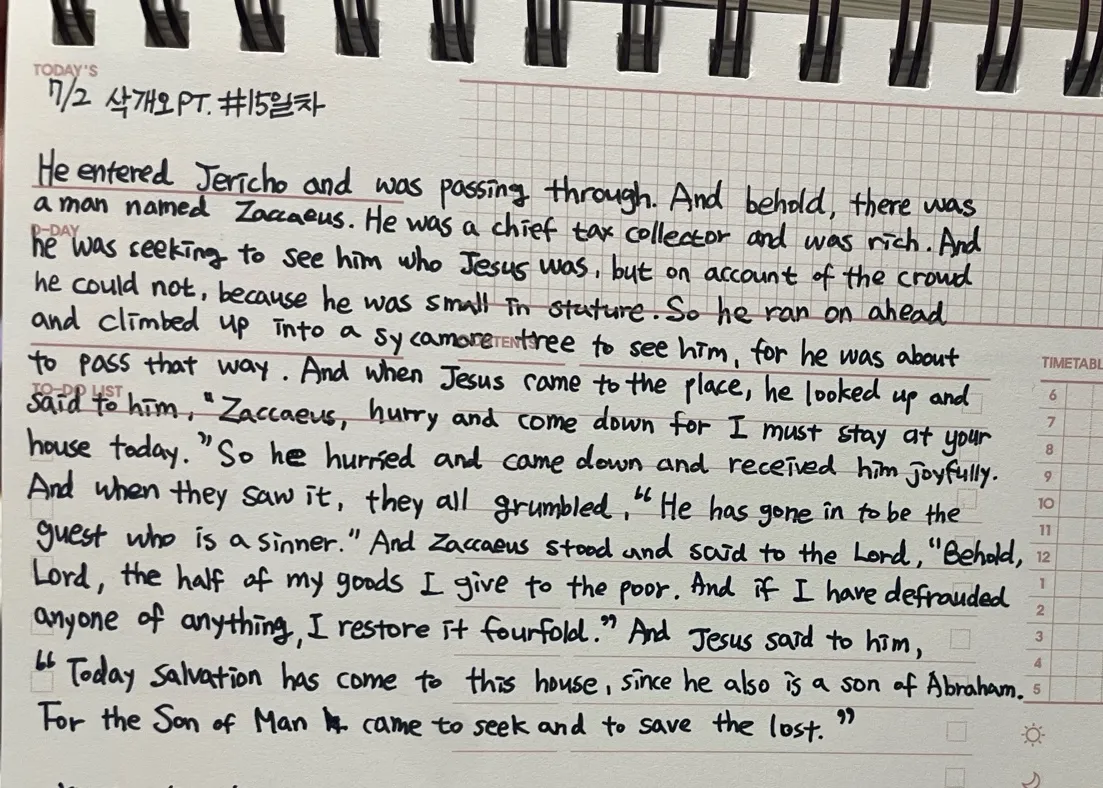 TODAY'S
7/2 삭개오PT. #15일차
He entered Jericho and was passing through. And behold, there was
a man named Zaccaeus. He was a chief tax collector and was rich. And
D-DAY
he was seeking to see him who Jesus was, but on account of the crowd
he could not, because he was small in stature. So he ran on ahead
and climbed up into a sycamore tree to see him, for he was about
TIMETABL
to pass that way. And when Jesus came to the place, he looked up and
TO-DO LIST
6
said to him, "Zaccaeus, hurry and come down for I must stay at your
7
house today." So he hurried and came down and received him joyfully.
8
9
And when they saw it, they all grumbled, "He has gone in to be the
10
11
guest who is a sinner." And Zaccaeus stood and said to the Lord, "Behold,
12
Lord, the half of my goods I give to the poor. And if I have defrauded
1
2
anyone of anything, I restore it fourfold." And Jesus said to him,
3
4
"Today salvation has come to this house, since he also is a son of Abraham.
5
For the Son of Man came to seek and to save the lost."